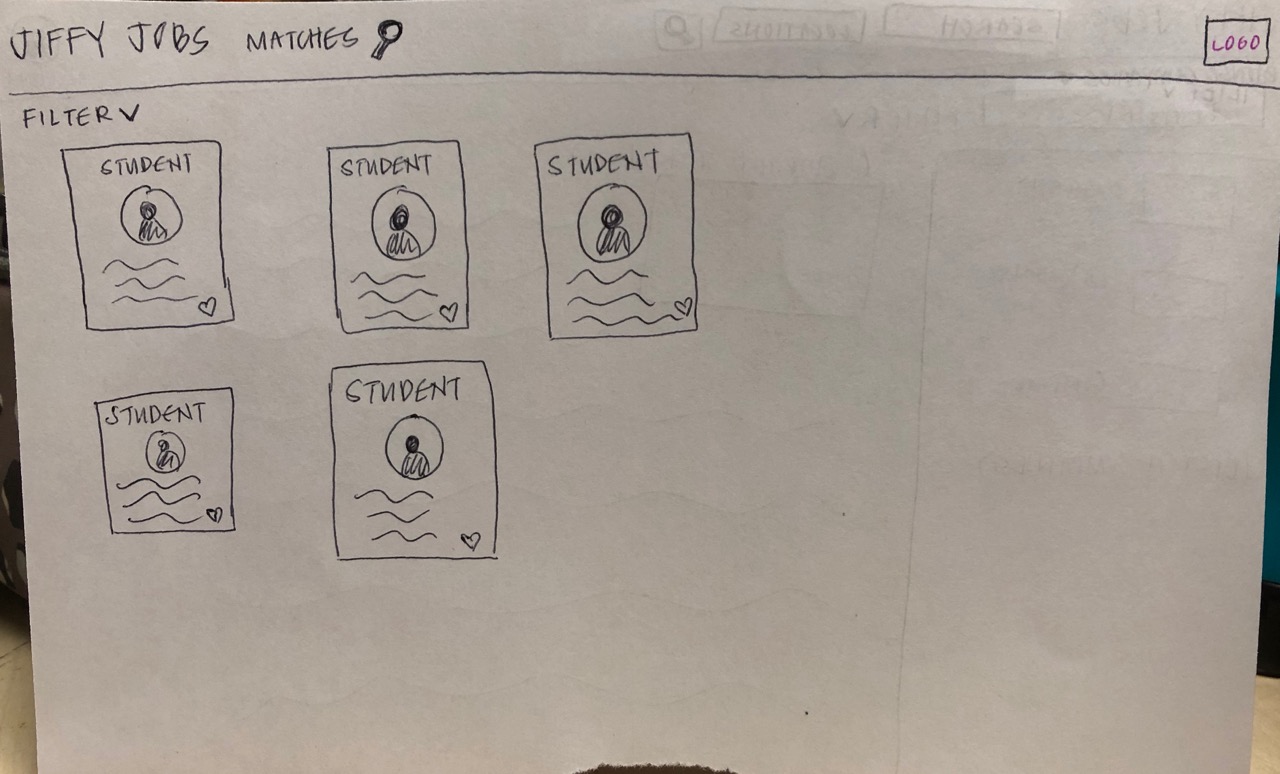 JIFFY JOBS MATCHES
LOGO
FILTER
STUDENT
STUDENT
STUDENT
STUDENT
STUDENT